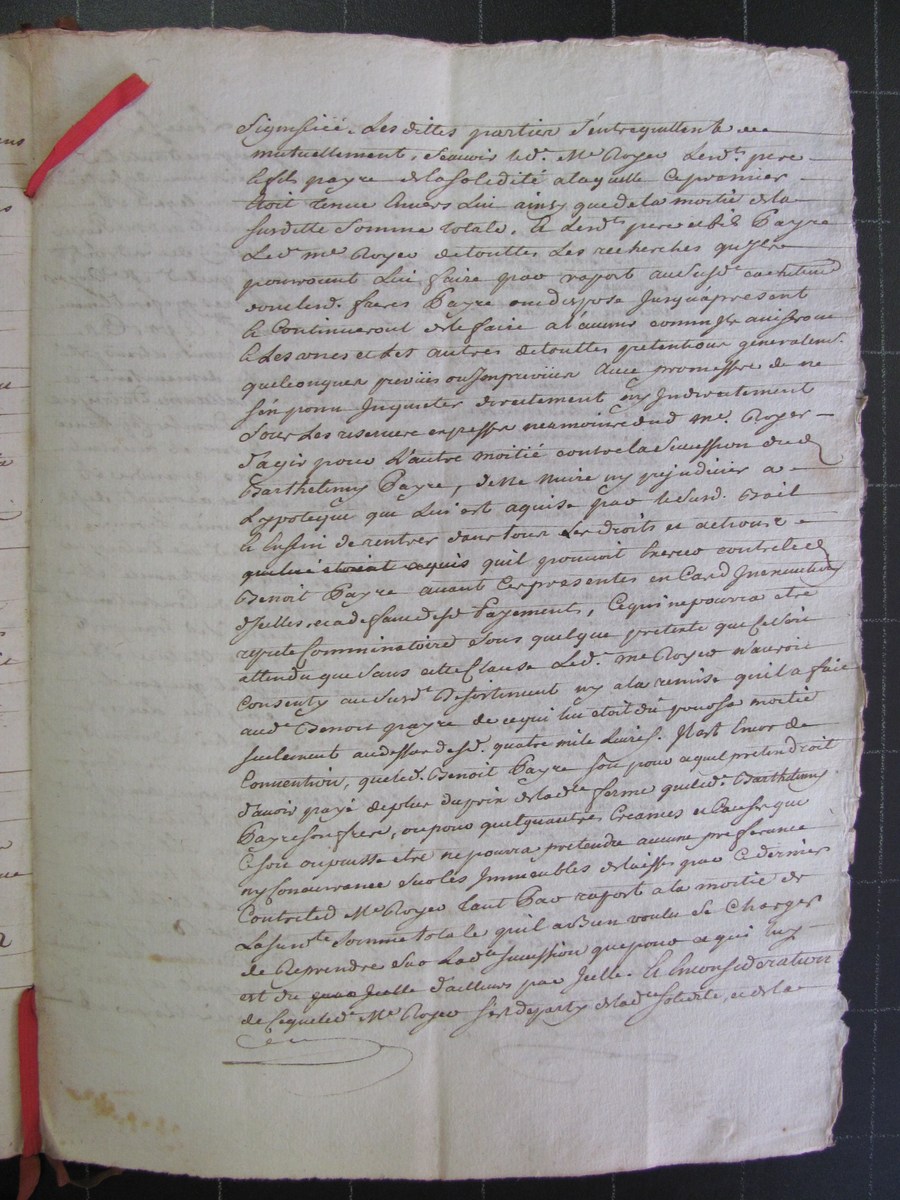 Signiffiée. Les dittes parties s'entrequittent de ce
mutuellement, scavoir led. Me Royer Lesd.ts pere
& fils payre de la solidité a laquelle ce premier
Etoit tenue Envers Lui ainsy que de la moitié de la
susditte Somme totale. Et Lesd.ts pere et fils Payre
Led.t me Royer de touttes Les recherches qu'ils
pourroient Lui faire par raport au susd.t
dont lesd. freres Payre ont disposé Jusqu'apresent
Et Continueront de le faire a l'avenir comme ils aviseront
Et Les unes et Les autres de touttes pretentions generalem.t
quelconques prevües ou Jmpreviies avec promesse de ne
s'en point Jnquieter directement ny Jndirectement
Sous Les reserves expresses neamoins dud. me. Royer
d'agir pour L'autre moitié contre la Succession dud.
Barthelimy Payre, de ne Nuire ny prejudicier a
L'ypoteque qui Lui est aquise par le susd. Bail
Et Enfin de rentrer dans tous Les droits et actions
qui lui étoient acquis quil pouvoit Exercer contre led.
Benoit Payre avant Ces presentes en Cas d'Jnexecution
d'Jcelles, et a deffaut desd. Payements, Ce qui ne pourra etre
reputé Comminatoire sous quelque pretexte que Ce soit
attendu que sans cette Clause Led.t me Royer n'auroit
Consenty au susd.t Desistiment ny a la remise qu'il a faite
aud.t Benoit payre de ce qui lui etoit dû pour sa moitié
seulement au dessus desd. quatre mile Livres. Jl est Encor de
Convention, que led. Benoit Payre soit pour ce quil pretendroit
d'avoir payé de plus du prix de lad.te ferme que led.t Barthelimy
Payre son frere, ou pour quelqu'autres Creances et Causes que
Ce soit ou puisse etre ne pourra pretendre aucune preferance
ny Concurrance sur les Jmmeubles delaissés par ce dernier
Contre led. Me Royer tant Par raport a la moitié de
La susd.te Somme totale qu'il a Bien voulu se Charger
de Reprendre sur Lad.te Succession que pour ce qui luy
est du par Jcelle d'ailleurs par Jcelle. Et En consideration
de ce que led.t Me Royer s'est departy de lad.te solidité, et de la